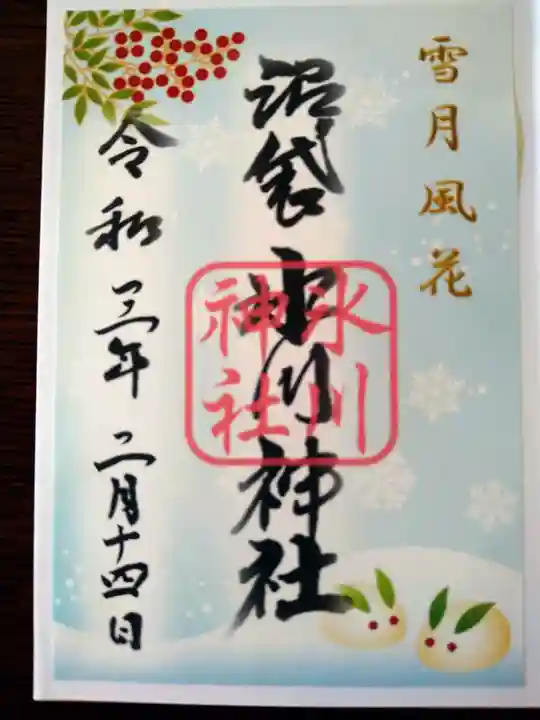 雪月風花
沼袋氷川神社
氷川
神社
令和三年二月十四日